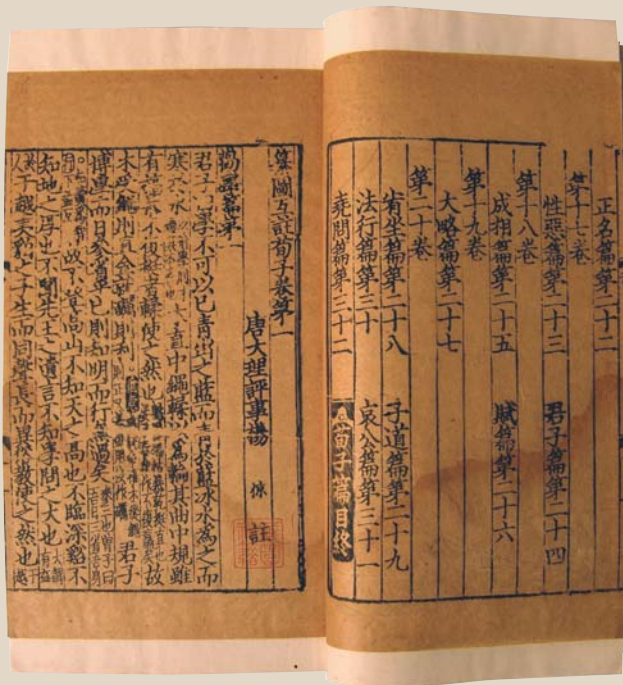 正名篇第二十二
第十七卷
性惡篇第二十三 君子篇第二十四
第十八卷
成相篇第二十五 賦篇第二十六
第十九卷
大略篇第二十七
第二十卷
宥坐篇第二十八 子道篇第二十九
法行篇第三十 哀公篇第三十一
堯問篇第三十二 荀子篇目終
纂圖互註荀子卷第一
唐大理評事楊 倞 註
勸學篇第一
君子曰學不可以已青出之藍而青於藍冰水為之而
寒於水 木直中繩輮以為輪其曲中規雖
有槁暴不復挺者輮使之然也 故
木受繩則直金就礪則利 君子
博學而日參省乎己則知明而行無過矣
故不登高山不知天之高也不臨深谿不
知地之厚也不聞先王之遺言不知學問之大也
干越夷貉之子生而同聲長而異俗教使之然也